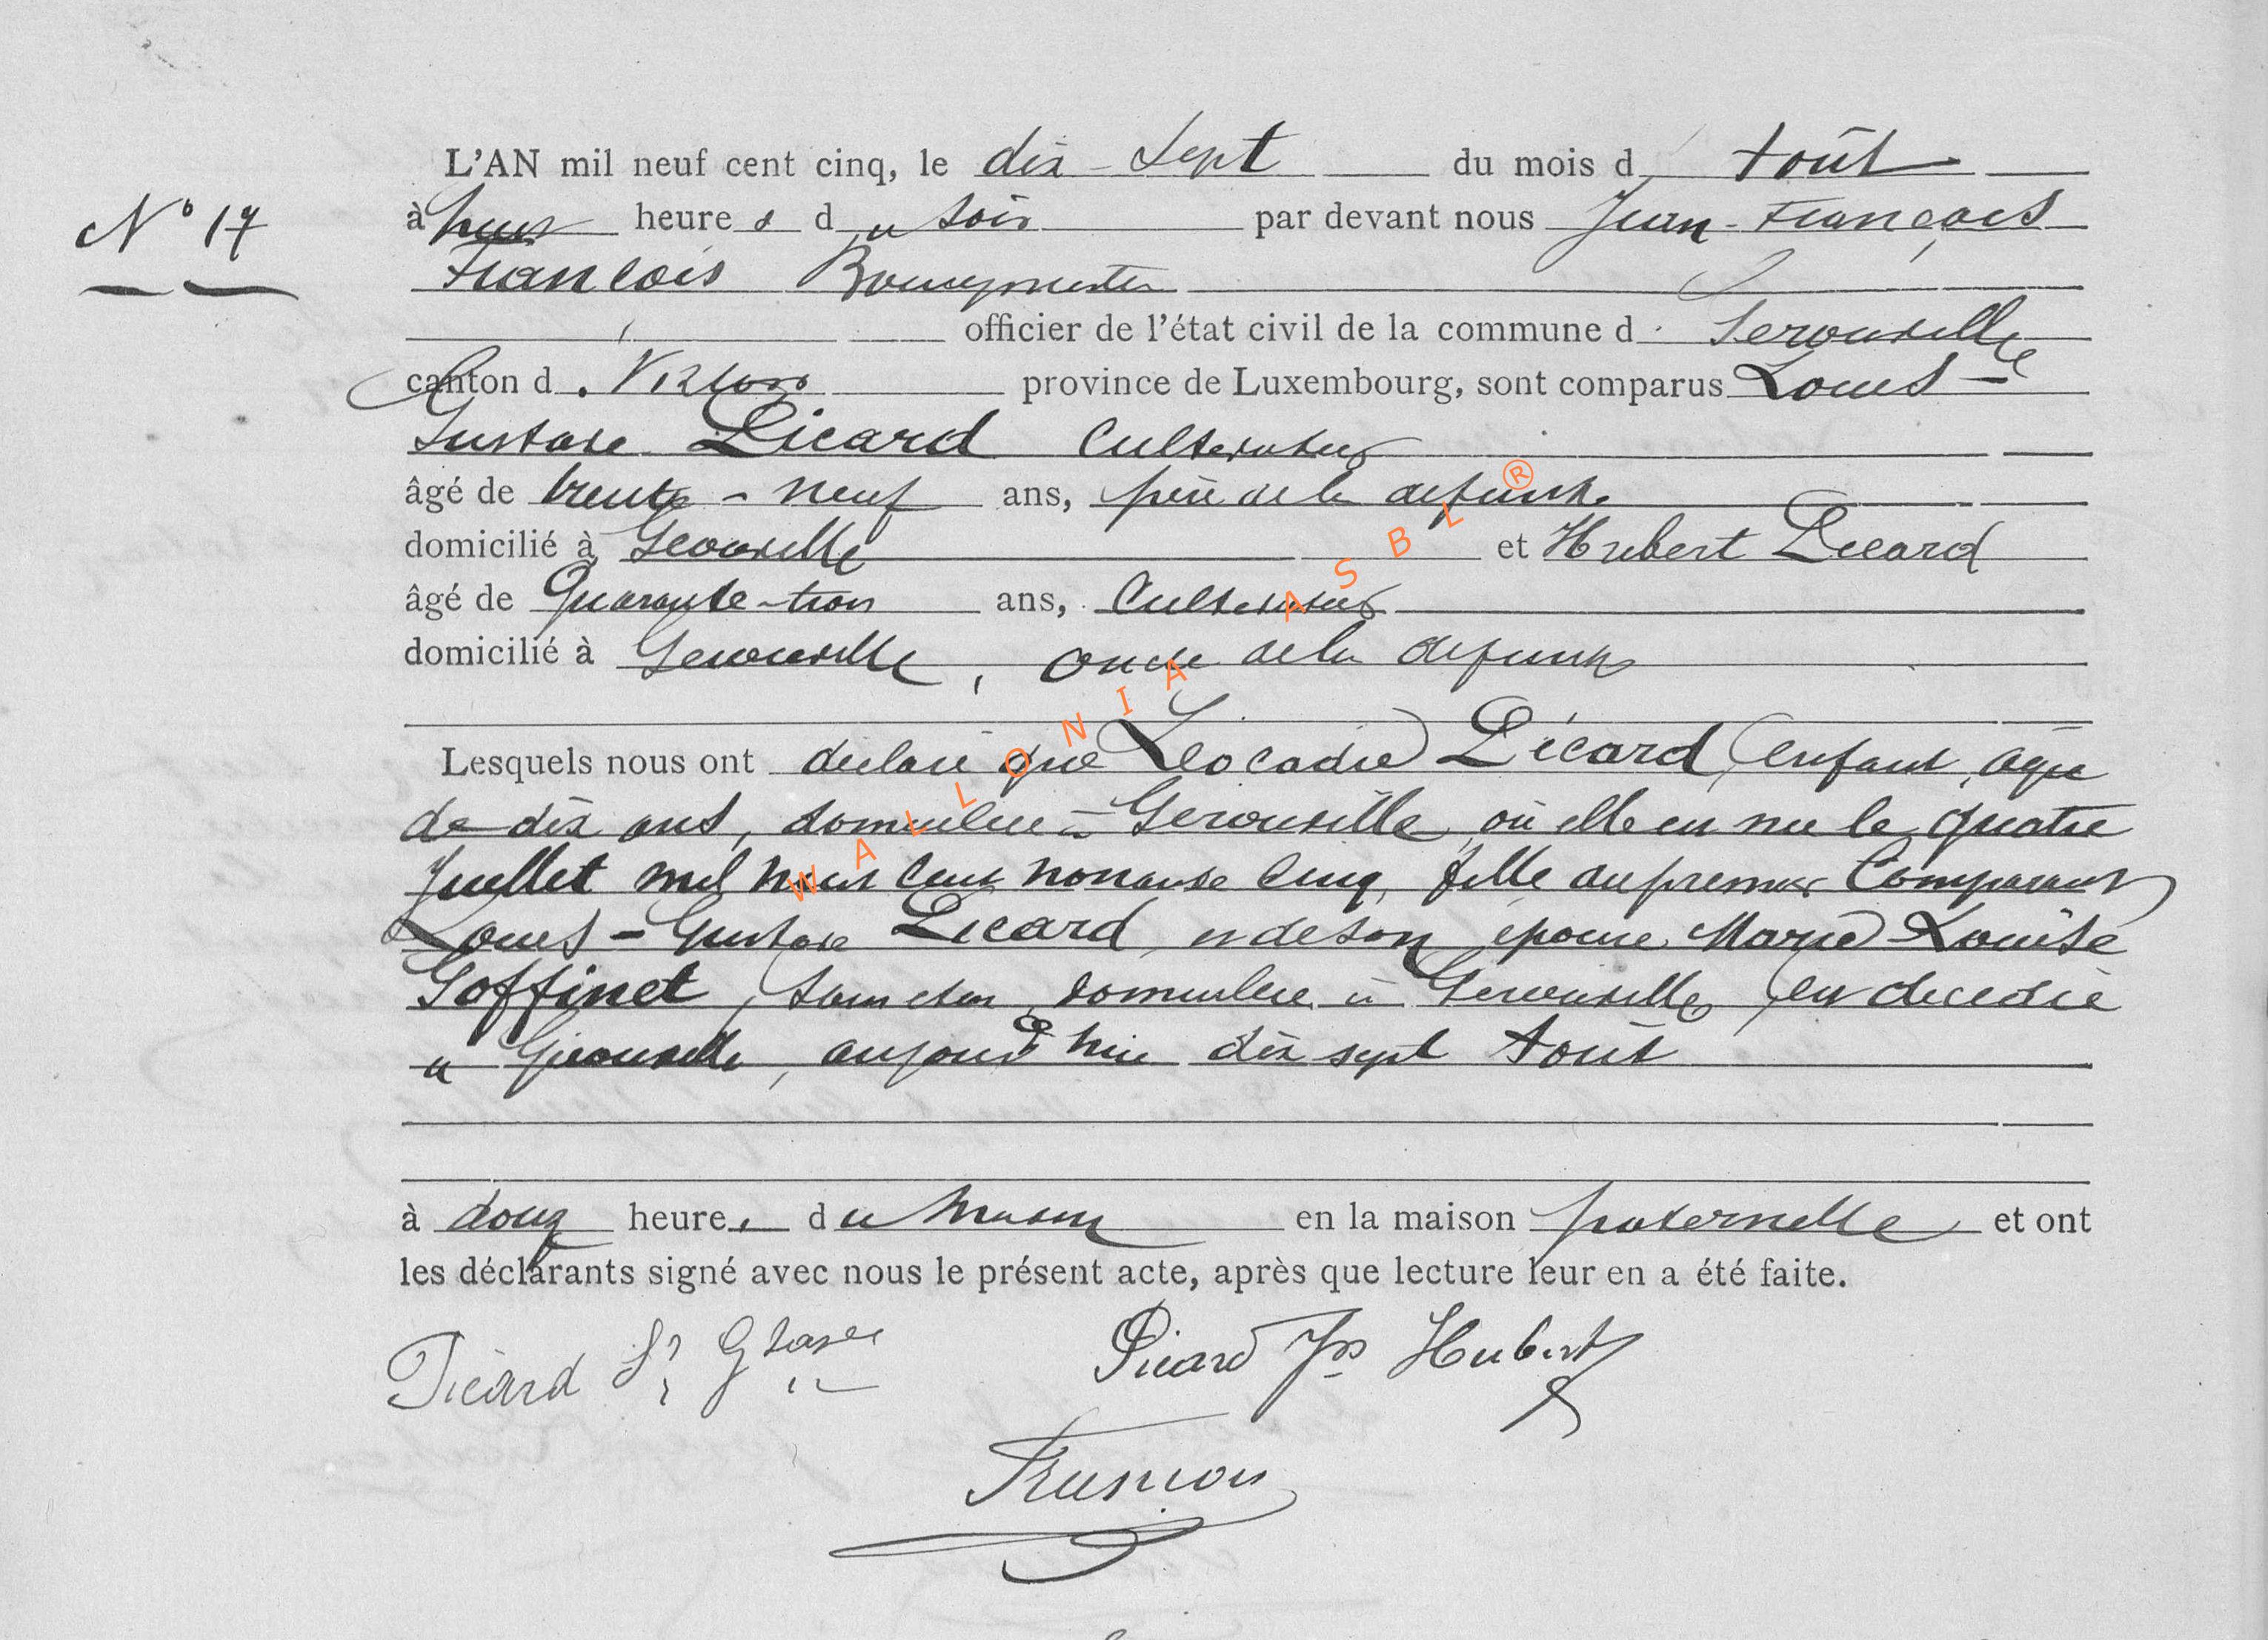 N° 17
L'AN mil neuf cent cinq, le dix-sept du mois d'Août
à huit heures du soir par devant nous Jean-François
François Bourgmestre
officier de l'état civil de la commune de Gérouville
canton de Virton province de Luxembourg, sont comparus Louis-
Gustave Picard Cultivateur
âgé de trente-neuf ans, père de la défunte
domicilié à Gérouville et Hubert Picard
âgé de Quarante-trois ans, Cultivateur
domicilié à Gérouville, oncle de la défunte
Lesquels nous ont déclaré que Léocadie Picard, enfant, âgée
de dix ans, domiciliée à Gérouville, où elle est née le quatre
Juillet mil huit cent nonante cinq, fille du premier Comparant
Louis-Gustave Picard, et de son épouse Marie-Louise
Goffinet, domiciliée à Gérouville, est décédée
à Gérouville, aujourd'hui dix sept Août
à douze heures du matin en la maison paternelle et ont
les déclarants signé avec nous le présent acte, après que lecture leur en a été faite.
Picard Ls Gtave
Picard Jos Hubert
WALLONIA ASBL ®